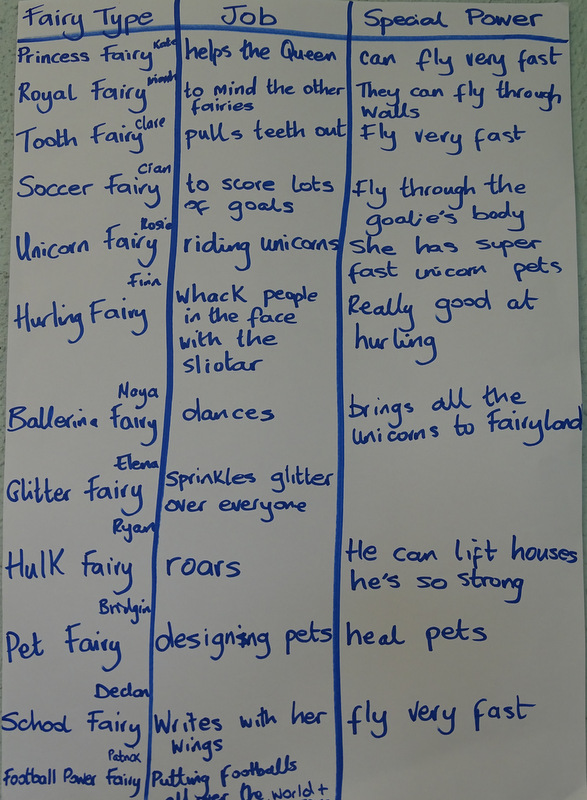 Fairy Type Job Special Power
Kate
Princess Fairy helps the Queen can fly very fast
Niamh
Royal Fairy to mind the other They can fly through
fairies walls
Clare
Tooth Fairy pulls teeth out Fly very fast
Cian
Soccer Fairy to score lots Fly through the
of goals goalie's body
Rosie
Unicorn Fairy riding unicorns she has super
fast unicorn pets
Finn
Hurling Fairy whack people Really good at
in the face hurling
with the
sliotar
Moya
Ballerina Fairy dances brings all the
unicorns to Fairyland
Elena
Glitter Fairy Sprinkles glitter
over everyone
Ryan
Hulk Fairy roars He can lift houses
he's so strong
Pet Fairy designing pets heal pets
Declan
School Fairy Writes with her fly very fast
wings
Football Power Fairy Putting footballs
all over the world +